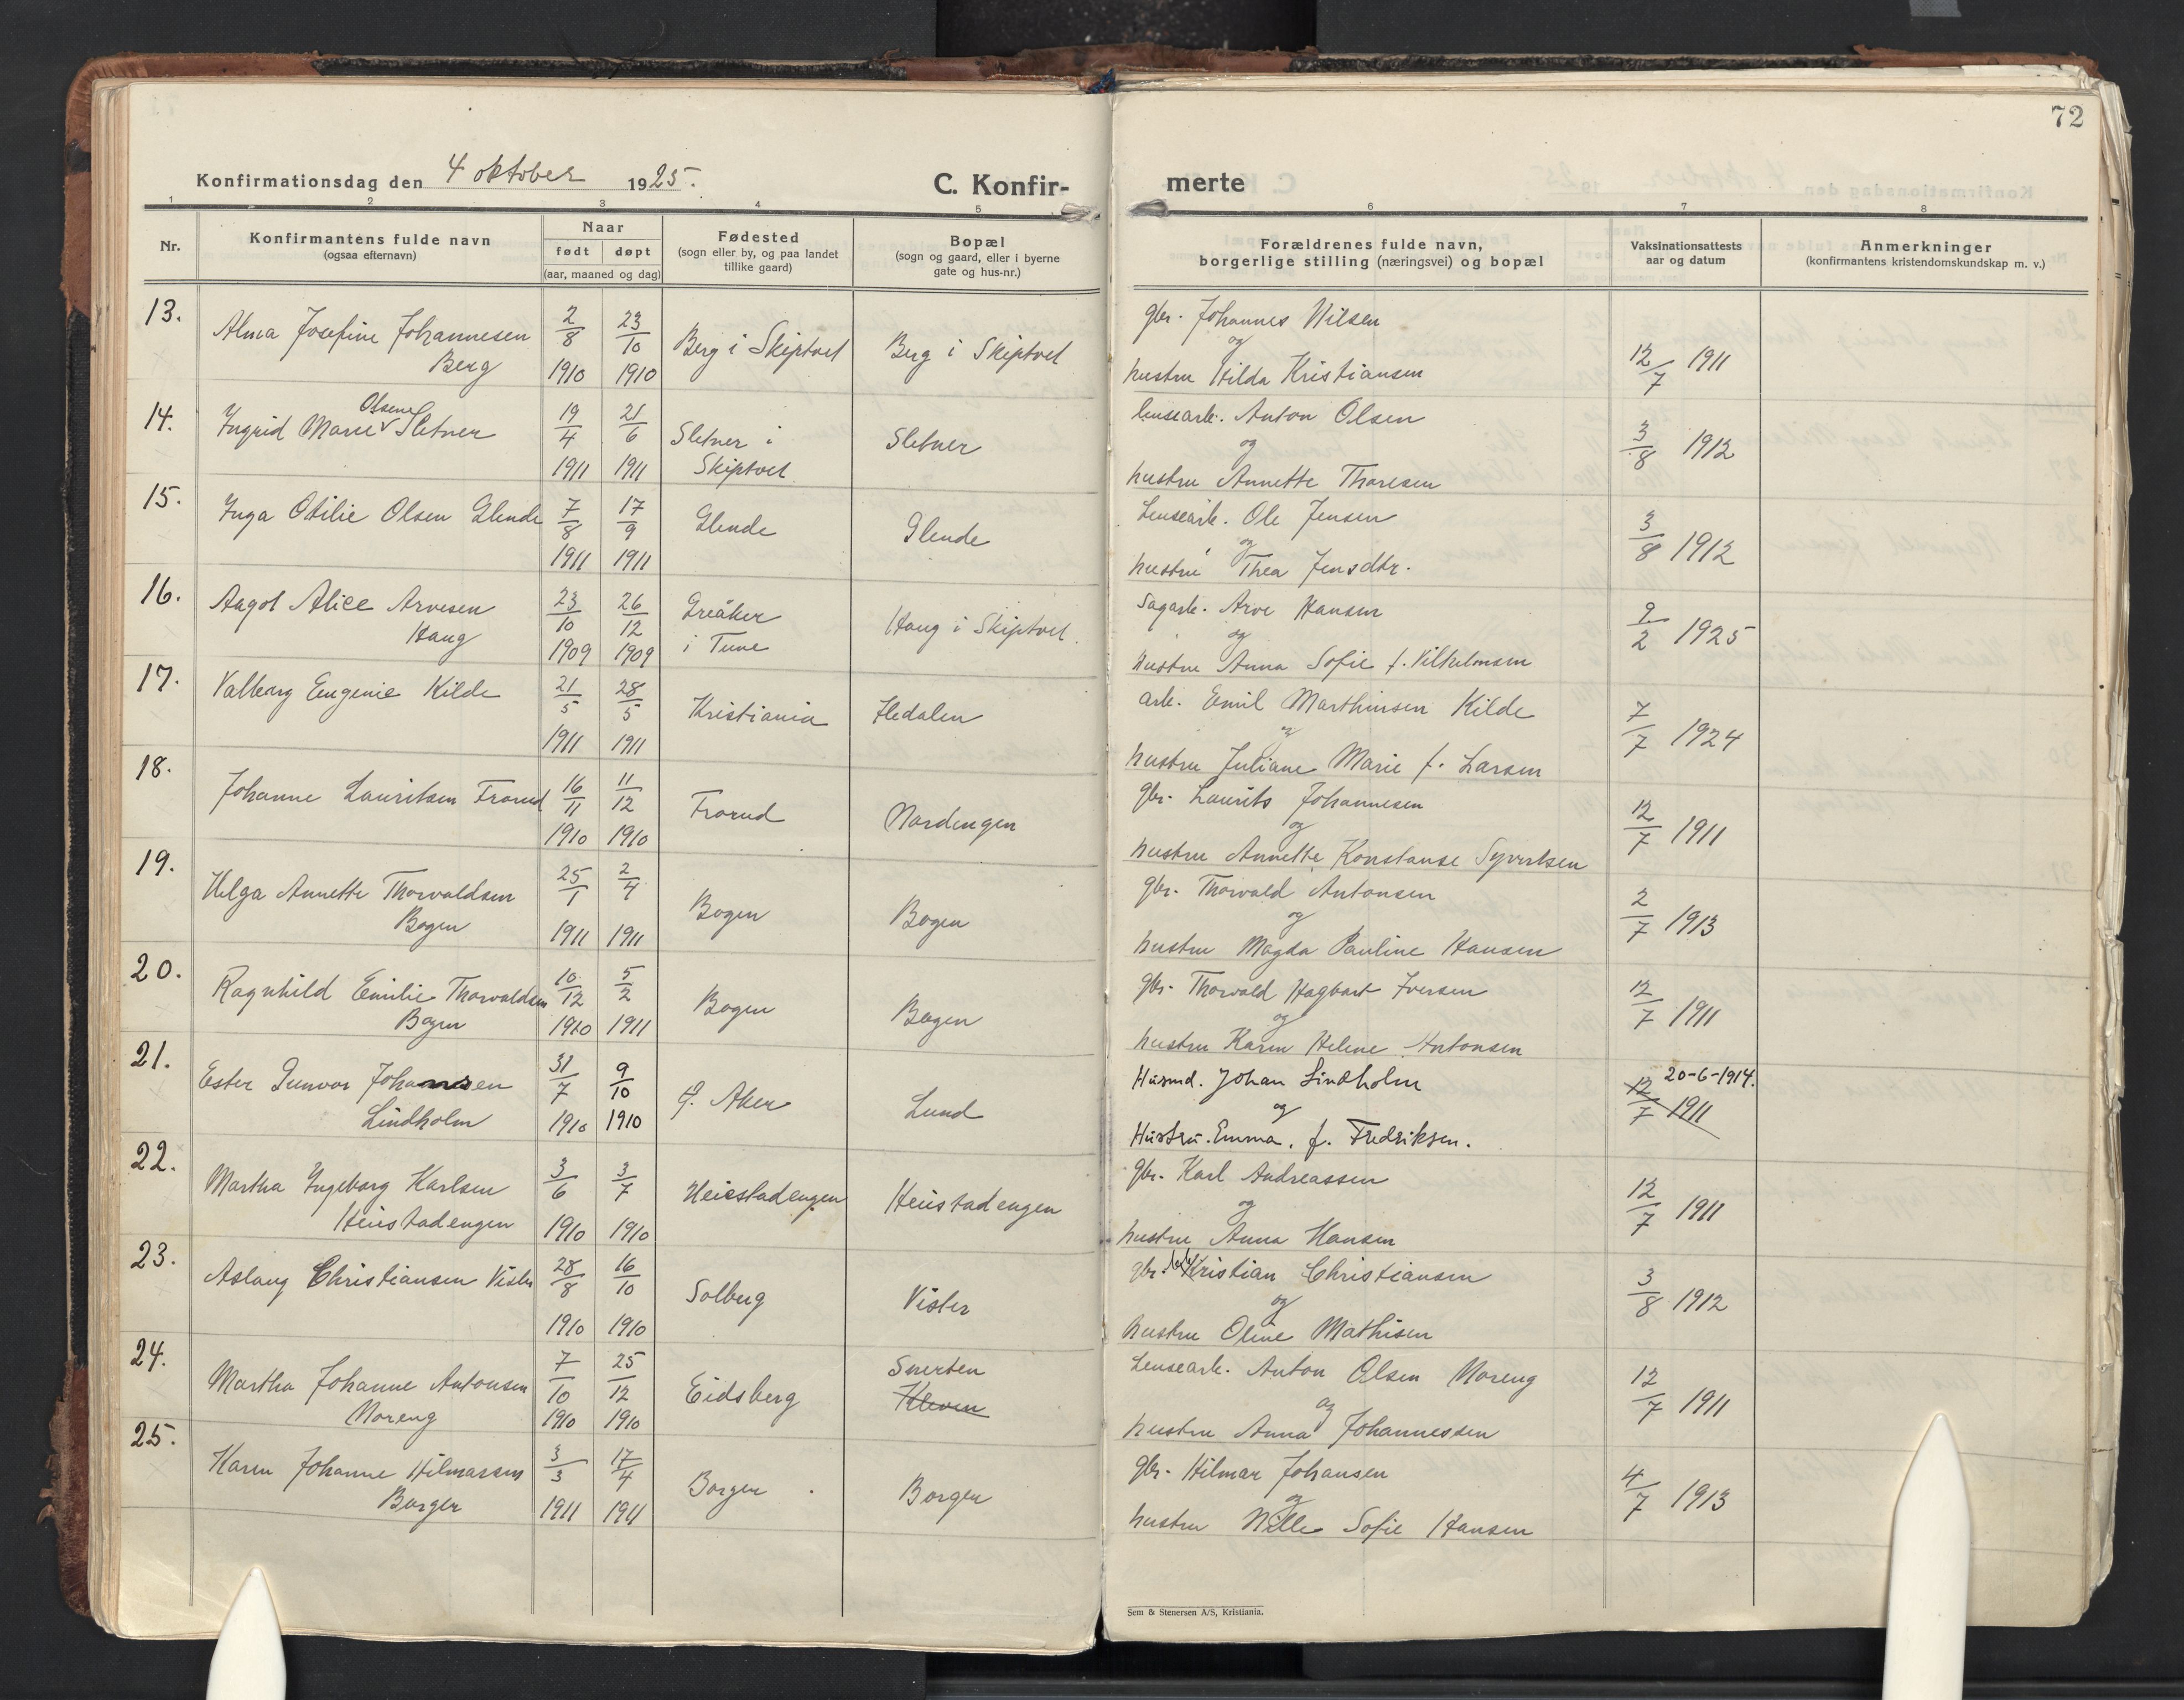 72
Konfirmationsdag den 4 oktober 1925.
C. Konfir-
merte
1 2 3 4 5 6 7 8
Nr.
Konfirmantens fulde navn
(ogsaa efternavn)
Naar
født døpt
(aar, maaned og dag)
Fødested
(sogn eller by, og paa landet
tillike gaard)
Bopæl
(sogn og gaard, eller i byerne
gate og hus-nr.)
Forældrenes fulde navn,
borgerlige stilling (næringsvei) og bopæl
Vaksinationsattests
aar og datum
Anmerkninger
(konfirmantens kristendomskundskap m. v.)
13. Alma Josefine Johannesen Berg 2/8 1910 23/10 1910 Berg i Skiptvet Berg i Skiptvet
gbr. Johannes Nilsen
og
hustru Hilda Kristiansen 12/7 1911
14. Ingrid Marie Olsen Sletner 19/4 1911 21/6 1911 Sletner i Skiptvet Sletner
lensearb. Anton Olsen
og
hustru Annette Thoresen 3/8 1912
15. Inga Otilie Olsen Glende 7/8 1911 17/9 1911 Glende Glende
Lensearb. Ole Jensen
og
hustru Thea Jensdtr. 3/8 1912
16. Aagot Alice Arvesen Haug 23/10 1909 26/12 1909 Greåker i Tune Haug i Skiptvet
Sagarb. Arve Hansen
og
hustru Anna Sofie f. Vilhelmsen 9/2 1925
17. Valborg Eugenie Kilde 21/5 1911 28/5 1911 Kristiania Hedalen
arb. Emil Marthinsen Kilde
og
hustru Juliane Marie f. Larsen 7/7 1924
18. Johanne Lauritsen Frorud 16/11 1910 11/12 1910 Frorud Nordengen
gbr. Laurits Johannesen
og
hustru Annette Konstanse Syvertsen 12/7 1911
19. Helga Annette Thorvaldsen Bogen 25/1 1911 2/4 1911 Bogen Bogen
gbr. Thorvald Antonsen
og
hustru Magda Pauline Hansen 2/7 1913
20. Ragnhild Emilie Thorvaldsen Bogen 10/12 1910 5/2 1911 Bogen Bogen
gbr. Thorvald Hagbart Iversen
og
hustru Karen Helene Antonsen 12/7 1911
21. Ester Gunvor Johansen Lindholm 31/7 1910 9/10 1910 Ø. Aker Lund
Husmd. Johan Lindholm
og
Hustru. Emma. f. Fredriksen. 20-6-1914. 12/7 1911
22. Martha Ingeborg Karlsen Heiestadengen 3/6 1910 3/7 1910 Heiestadengen Heiestadengen
gbr. Karl Andreassen
og
hustru Anna Hansen 12/7 1911
23. Aslaug Christiansen Vister 28/8 1910 16/10 1910 Solberg Vister
gbr. Kristian Christiansen
og
hustru Oline Mathisen 3/8 1912
24. Martha Johanne Antonsen Moreng 7/10 1910 25/12 1910 Eidsberg Snerten Kleven
Lensearb. Anton Olsen Moreng
og
hustru Anna Johannessen 12/7 1911
25. Karen Johanne Hilmarsen Borger 3/3 1911 17/4 1911 Borger Borger
gbr. Hilmar Johansen
og
hustru Nille Sofie Hansen 4/7 1913
Sem & Stenersen A/S, Kristiania.